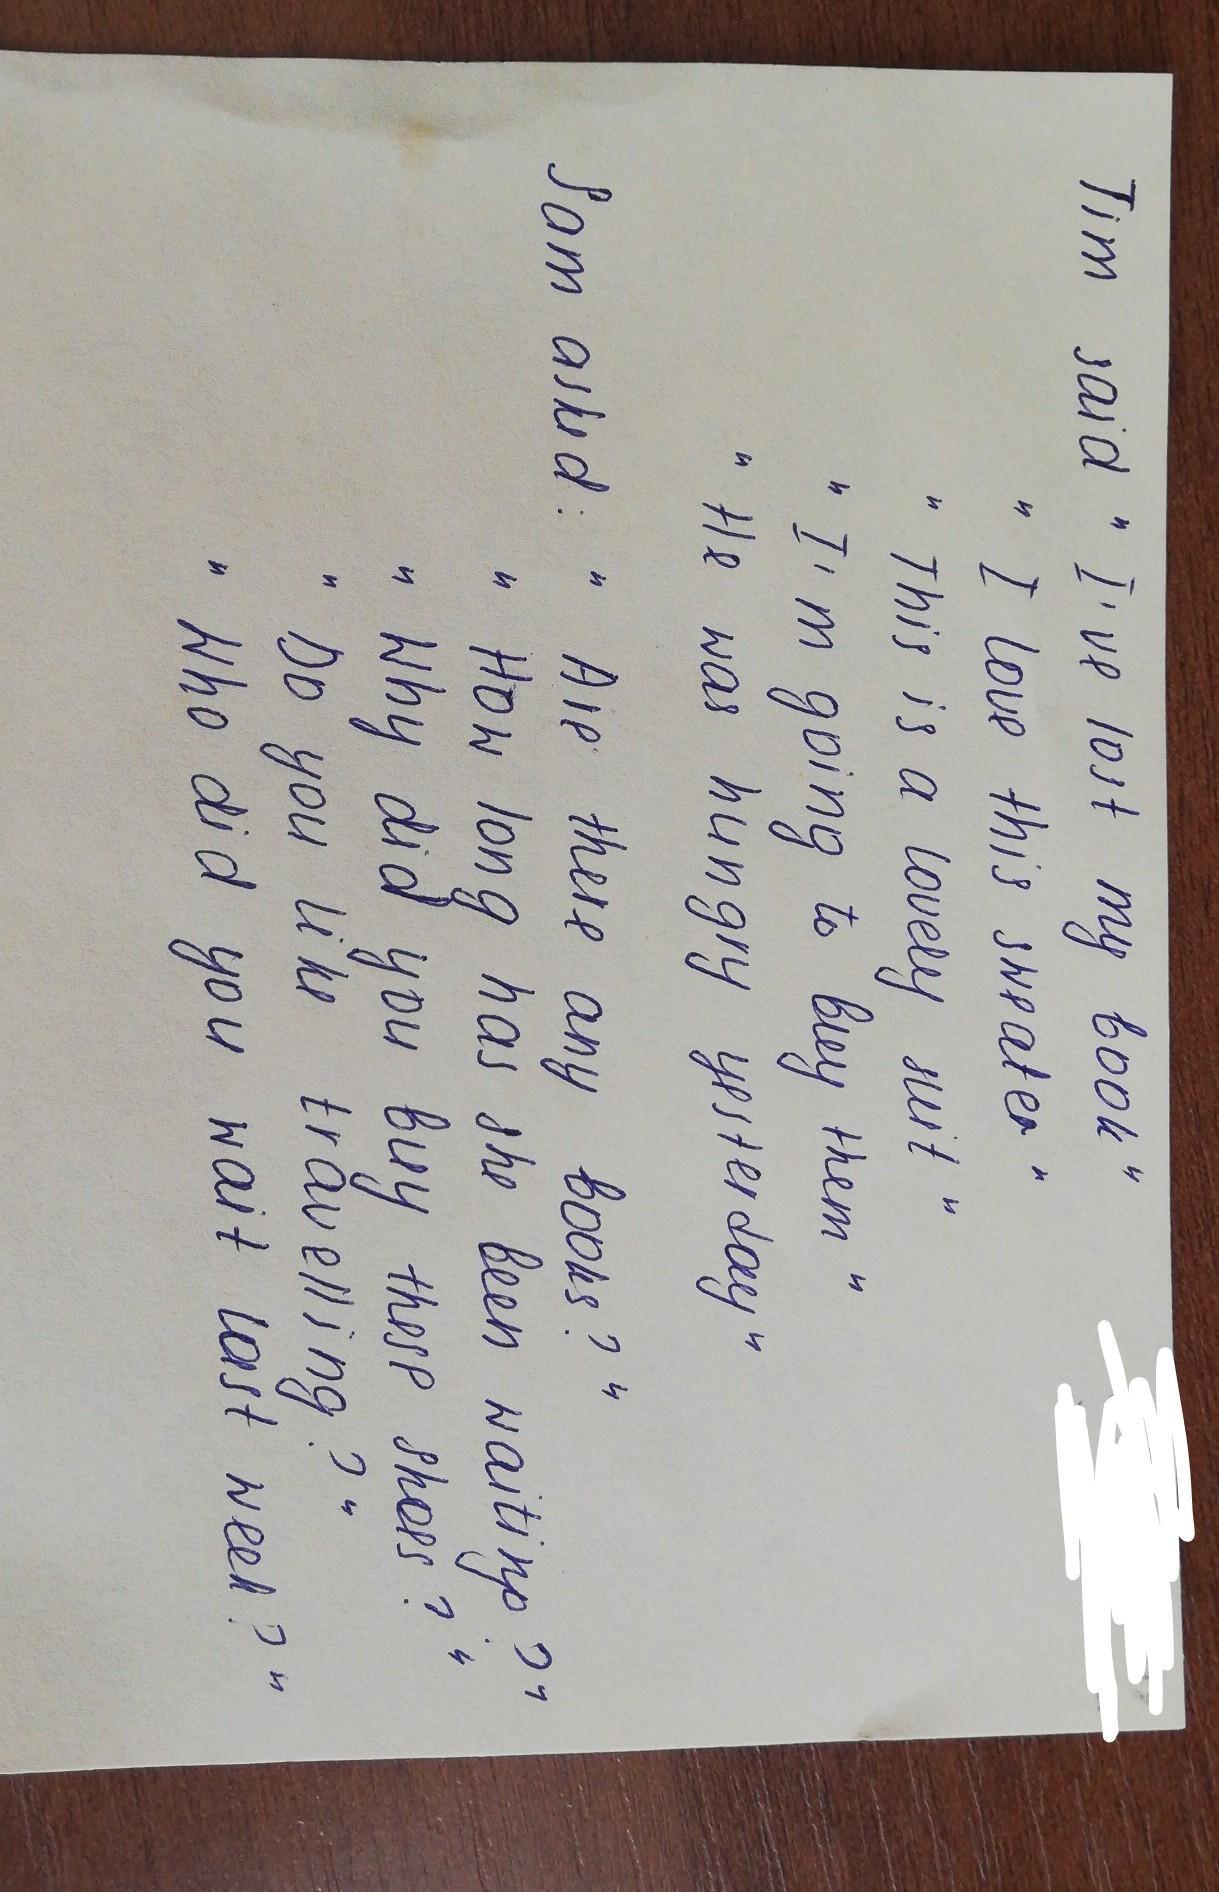 Tim said " I've lost my book"
" I love this sweater"
" This is a lovely suit"
" I'm going to buy them"
" He was hungry yesterday"
Sam asked: " Are there any books?"
" How long has she been waiting?"
" Why did you buy these shoes?"
" Do you like travelling?"
" Who did you wait last week?"